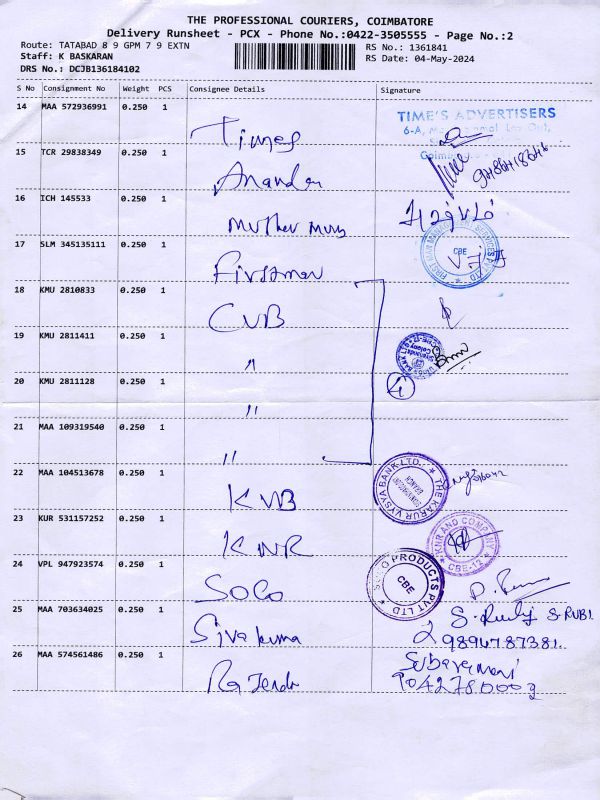 THE PROFESSIONAL COURIERS, COIMBATORE
Delivery Runsheet - PCX - Phone No.:0422-3505555 - Page No.:2
Route: TATABAD 8 9 GPM 7 9 EXTN
RS No.: 1361841
Staff: K BASKARAN
RS Date: 04-May-2024
DRS No.: DCJB136184102
S No Consignment No Weight PCS Consignee Details Signature
14 MAA 572936991 0.250 1
Times
TIME'S ADVERTISERS
6-A,
15 TCR 29838349 0.250 1
Anandan
16 ICH 145533 0.250 1
17 SLM 345135111 0.250 1
Firstman
CBE
18 KMU 2810833 0.250 1
CUB
19 KMU 2811411 0.250 1
"
20 KMU 2811128 0.250 1
"
4
21 MAA 109319540 0.250 1
"
22 MAA 104513678 0.250 1
KVB
THE KARUR VYSYA BANK LTD.
23 KUR 531157252 0.250 1
KNR
KNR AND COMPANY
CBE-12
24 VPL 947923574 0.250 1
SOCO
PRODUCTS PVT LTD
CBE
25 MAA 703634025 0.250 1
Sivakuma
S. RUBI.
9894787381.
26 MAA 574561486 0.250 1
Rajendr